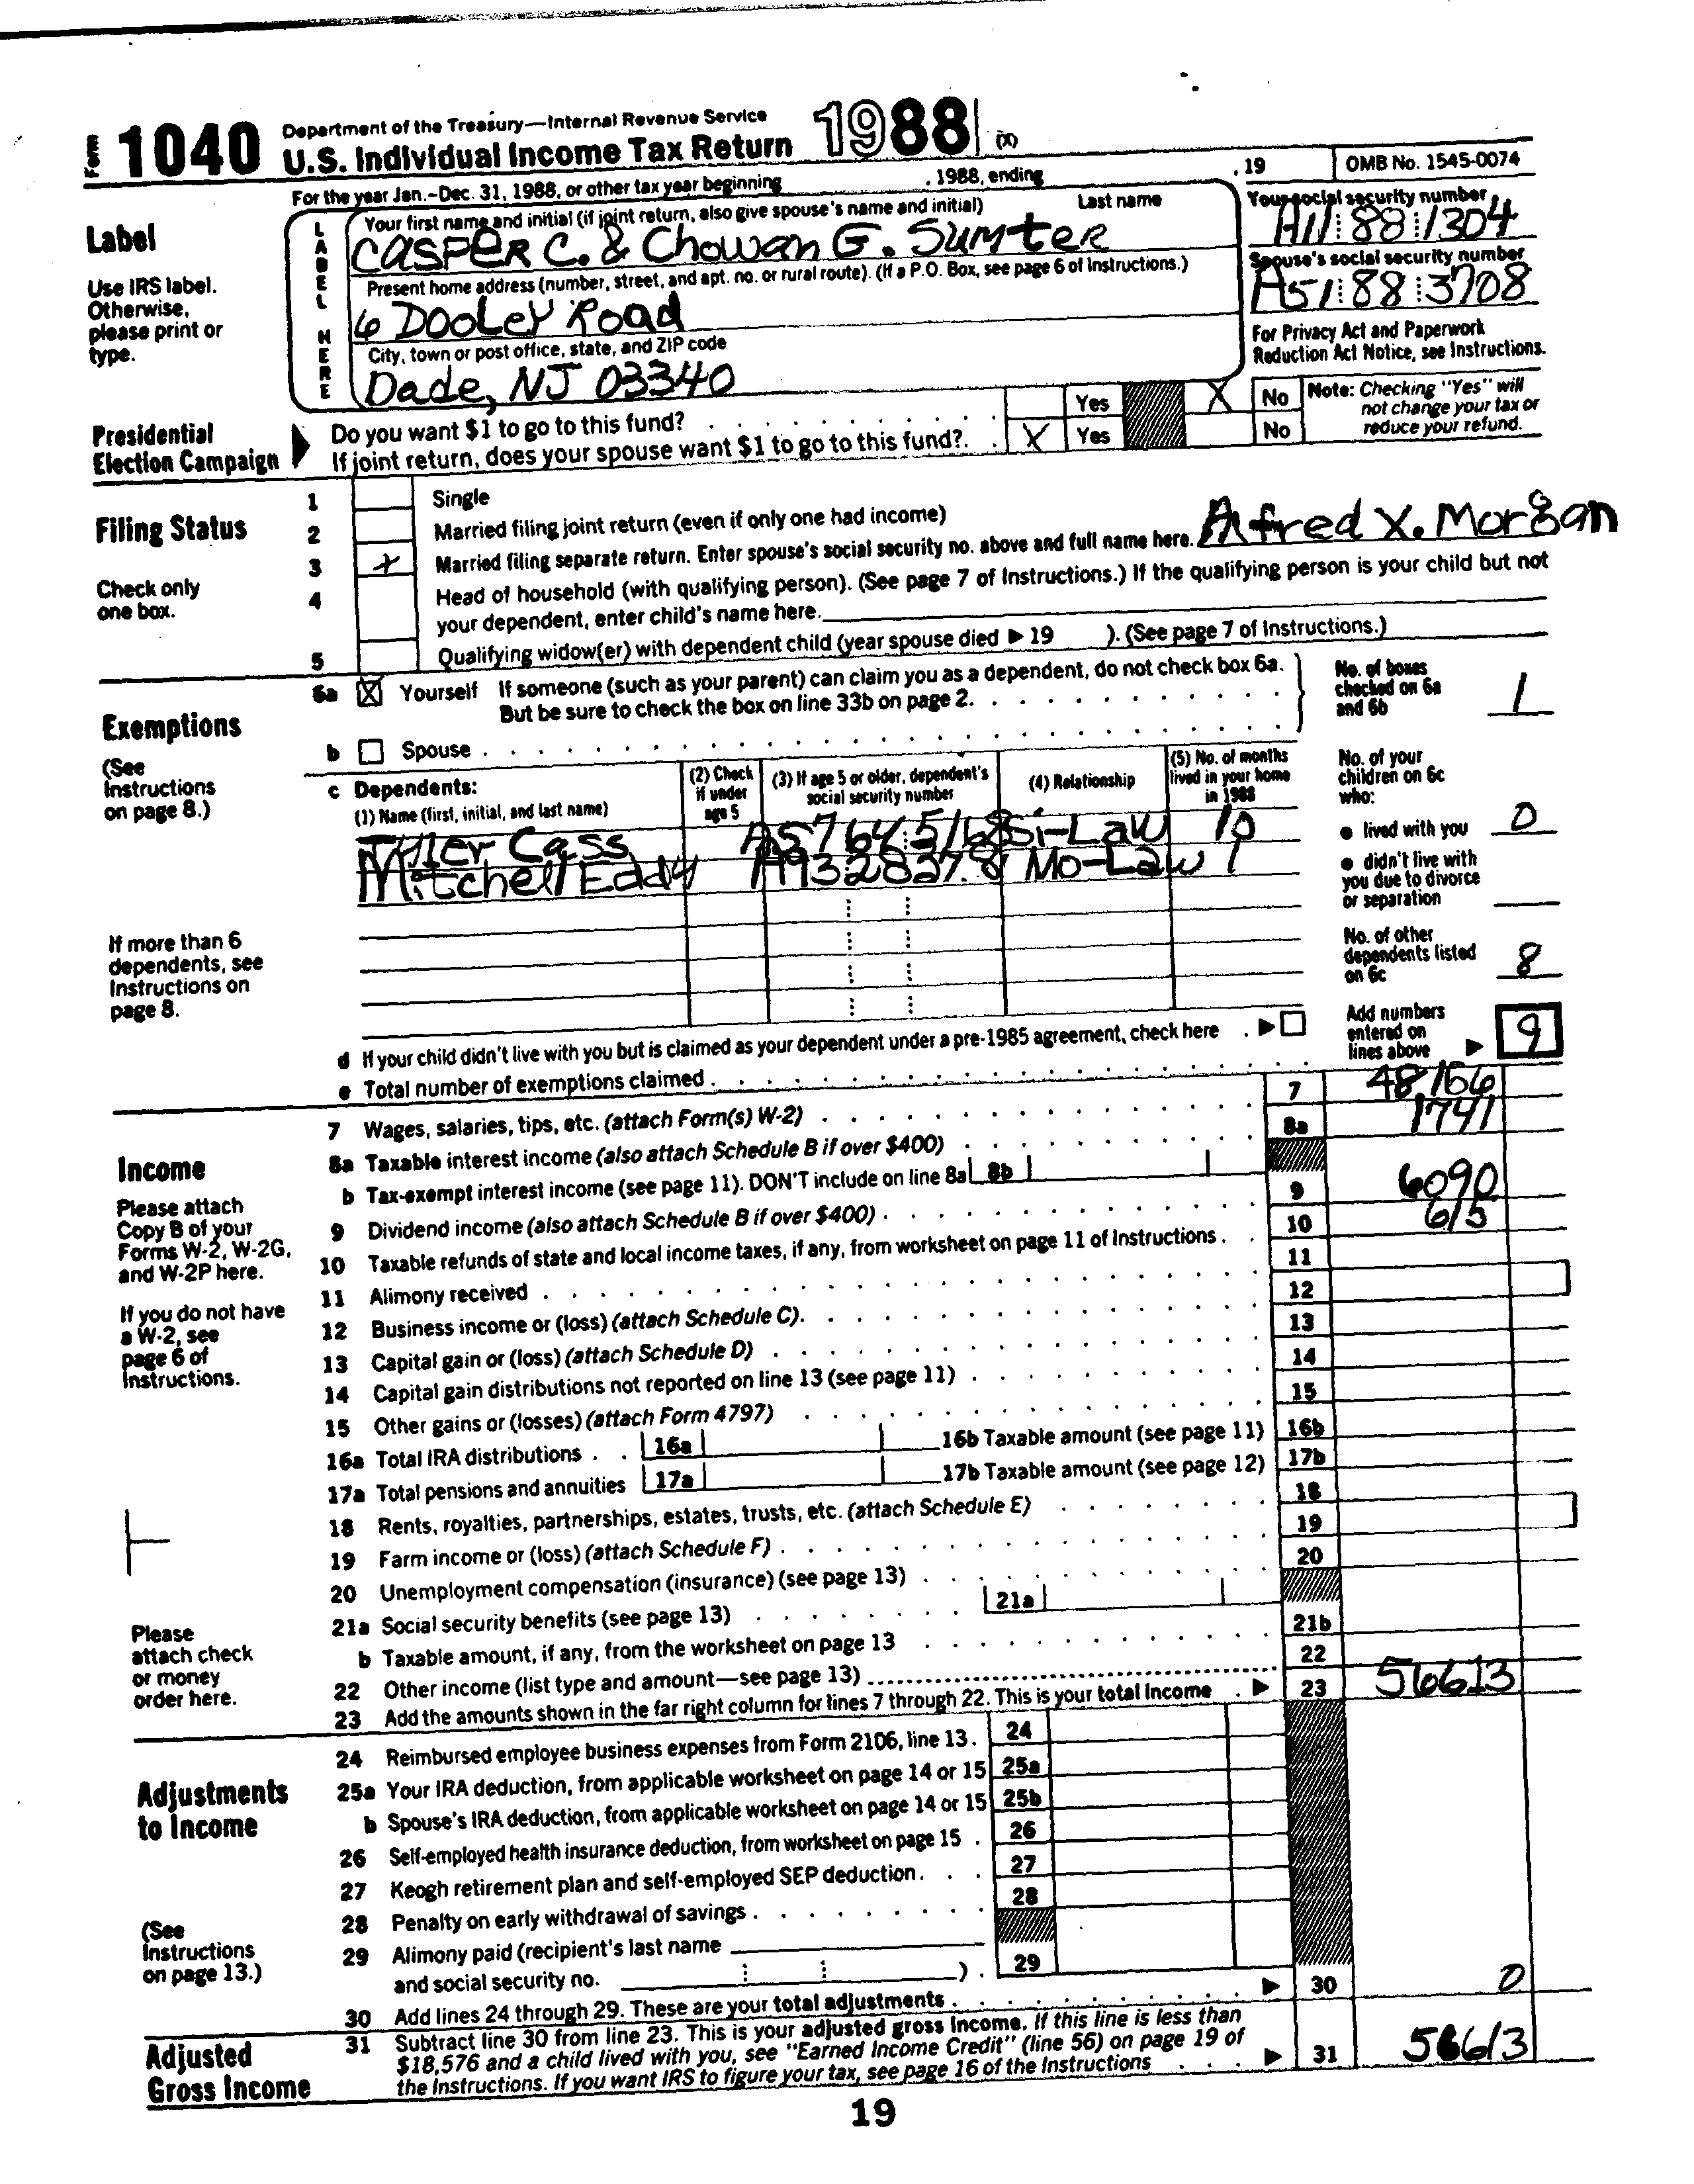 Form 1040 Department of the Treasury—Internal Revenue Service
U.S. Individual Income Tax Return 1988 (X)
For the year Jan.–Dec. 31, 1988, or other tax year beginning , 1988, ending , 19 OMB No. 1545-0074
Label
Use IRS label. Otherwise, please print or type.
LABEL HERE
Your first name and initial (if joint return, also give spouse's name and initial) Last name
CASPER C. & Chowan G. Sumter
Your social security number
A11 88 1304
Present home address (number, street, and apt. no. or rural route). (If a P.O. Box, see page 6 of Instructions.)
6 Dooley Road
Spouse's social security number
A51 88 3708
City, town or post office, state, and ZIP code
Dade, NJ 03340
For Privacy Act and Paperwork Reduction Act Notice, see Instructions.
Presidential Election Campaign
Do you want $1 to go to this fund? Yes X No
If joint return, does your spouse want $1 to go to this fund? X Yes No
Note: Checking "Yes" will not change your tax or reduce your refund.
Filing Status
Check only one box.
1 Single
2 Married filing joint return (even if only one had income)
3 X Married filing separate return. Enter spouse's social security no. above and full name here. Alfred X. Morgan
4 Head of household (with qualifying person). (See page 7 of Instructions.) If the qualifying person is your child but not
your dependent, enter child's name here.
5 Qualifying widow(er) with dependent child (year spouse died ▶ 19 ). (See page 7 of Instructions.)
Exemptions
(See Instructions on page 8.)
6a X Yourself If someone (such as your parent) can claim you as a dependent, do not check box 6a.
But be sure to check the box on line 33b on page 2.
b Spouse
No. of boxes checked on 6a and 6b 1
c Dependents:
(1) Name (first, initial, and last name)
(2) Check if under age 5
(3) If age 5 or older, dependent's social security number
(4) Relationship
(5) No. of months lived in your home in 1988
Tyler Cass A57 64 5168 Si-Law 10
Mitchell Eddy A93 28 3278 Mo-Law 1
No. of your children on 6c who:
● lived with you 0
● didn't live with you due to divorce or separation
No. of other dependents listed on 6c 8
If more than 6 dependents, see Instructions on page 8.
d If your child didn't live with you but is claimed as your dependent under a pre-1985 agreement, check here ▶
e Total number of exemptions claimed
Add numbers entered on lines above ▶ 9
Income
Please attach Copy B of your Forms W-2, W-2G, and W-2P here.
If you do not have a W-2, see page 6 of Instructions.
Please attach check or money order here.
7 Wages, salaries, tips, etc. (attach Form(s) W-2) 7 48166
8a Taxable interest income (also attach Schedule B if over $400) 8a 1741
b Tax-exempt interest income (see page 11). DON'T include on line 8a 8b
9 Dividend income (also attach Schedule B if over $400) 9 6090
10 Taxable refunds of state and local income taxes, if any, from worksheet on page 11 of Instructions 10 615
11 Alimony received 11
12 Business income or (loss) (attach Schedule C) 12
13 Capital gain or (loss) (attach Schedule D) 13
14 Capital gain distributions not reported on line 13 (see page 11) 14
15 Other gains or (losses) (attach Form 4797) 15
16a Total IRA distributions 16a 16b Taxable amount (see page 11) 16b
17a Total pensions and annuities 17a 17b Taxable amount (see page 12) 17b
18 Rents, royalties, partnerships, estates, trusts, etc. (attach Schedule E) 18
19 Farm income or (loss) (attach Schedule F) 19
20 Unemployment compensation (insurance) (see page 13) 20
21a Social security benefits (see page 13) 21a
b Taxable amount, if any, from the worksheet on page 13 21b
22 Other income (list type and amount—see page 13) 22
23 Add the amounts shown in the far right column for lines 7 through 22. This is your total income ▶ 23 56613
Adjustments to Income
(See Instructions on page 13.)
24 Reimbursed employee business expenses from Form 2106, line 13. 24
25a Your IRA deduction, from applicable worksheet on page 14 or 15 25a
b Spouse's IRA deduction, from applicable worksheet on page 14 or 15 25b
26 Self-employed health insurance deduction, from worksheet on page 15 26
27 Keogh retirement plan and self-employed SEP deduction 27
28 Penalty on early withdrawal of savings 28
29 Alimony paid (recipient's last name
and social security no. ) 29
30 Add lines 24 through 29. These are your total adjustments ▶ 30 0
Adjusted Gross Income
31 Subtract line 30 from line 23. This is your adjusted gross income. If this line is less than
$18,576 and a child lived with you, see "Earned Income Credit" (line 56) on page 19 of
the Instructions. If you want IRS to figure your tax, see page 16 of the Instructions ▶ 31 56613
19